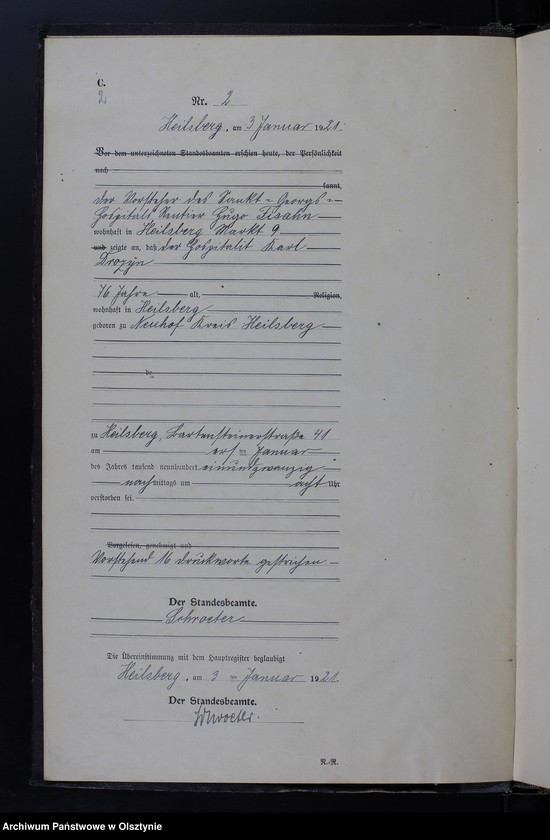 C.
2
Nr. 2
Heilsberg, am 3 Januar 1921.
Vor dem unterzeichneten Standesbeamten erschien heute, der Persönlichkeit
nach
kannt,
der Vorsteher des Sankt-Georgs-
Hospitals, Rentier Hugo Tisahn
wohnhaft in Heilsberg Markt 9
und zeigte an, daß der Hospitalit Karl
Drozyn
76 Jahre alt, Religion,
wohnhaft in Heilsberg
geboren zu Neuhof Kreis Heilsberg
de
zu Heilsberg, Bartensteinerstraße 41
am ersten Januar
des Jahres tausend neunhundert einundzwanzig
nachmittags um acht Uhr
verstorben sei.
Vorgelesen, genehmigt und
Vorstehend 16 Druckworte gestrichen.
Der Standesbeamte.
Schroeter
Die Übereinstimmung mit dem Hauptregister beglaubigt
Heilsberg, am 3 ten Januar 1921.
Der Standesbeamte.
Schroeter.
R.-R.
Archiwum Państwowe w Olsztynie